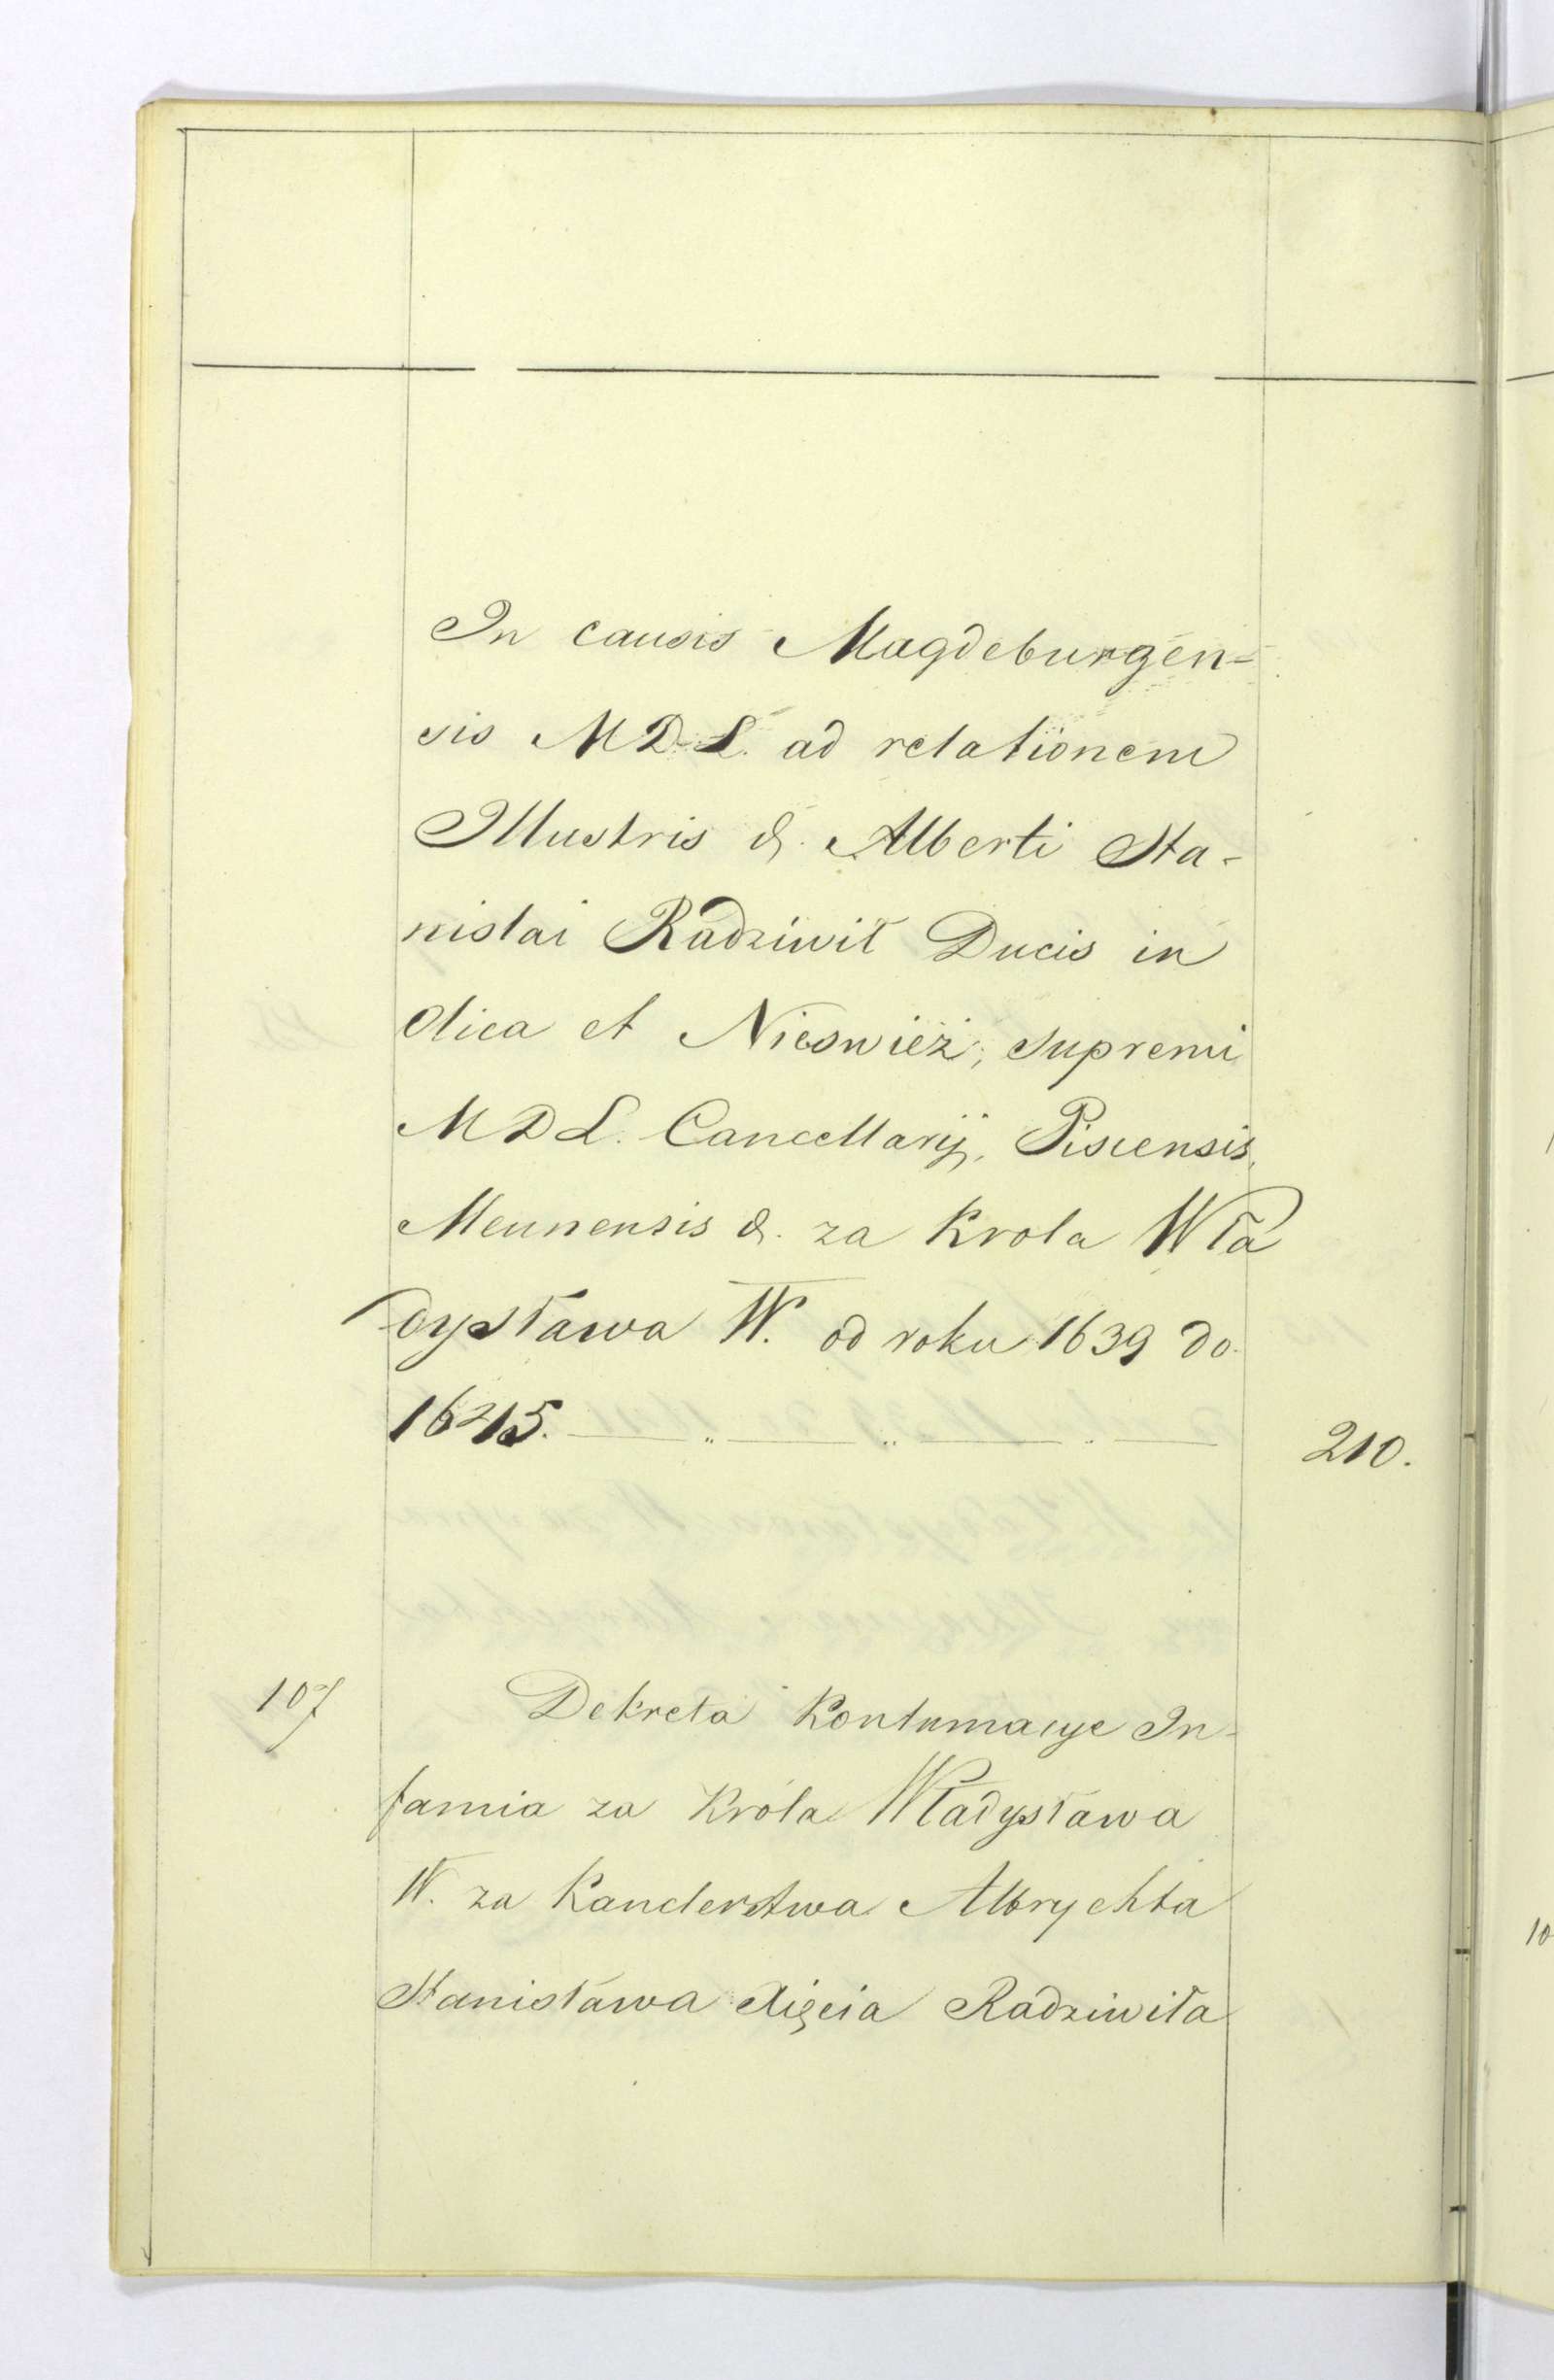 In causis Magdeburgen-
sis M D L. ad relationem
Illustris &. Alberti Sta-
nislai Radziwił Ducis in
Olica et Nieswież, supremi
M D L. Cancellarij, Piscensis,
Meunensis &. za Krola Wła
dysława IV. od roku 1639 do
1645. 210.
107 Dekreta Kontumacye In-
famia za Króla Władysława
IV. za Kanclerstwa Albrychta
Stanisława Xięcia Radziwiła